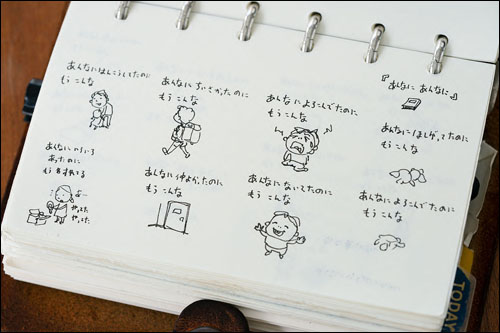 『あんなに あんなに』
あんなに ほしがってたのに
もう こんな
あんなに よろこんでたのに
もう こんな
あんなに よろこんでたのに
もう こんな
あんなに ないてたのに
もう こんな
あんなに ちいさかったのに
もう こんな
あんなに 仲よかったのに
もう こんな
あんなに はんこうしてたのに
もう こんな
あんなに いろいろ
あったのに
もう
やってた
やってた
TODA